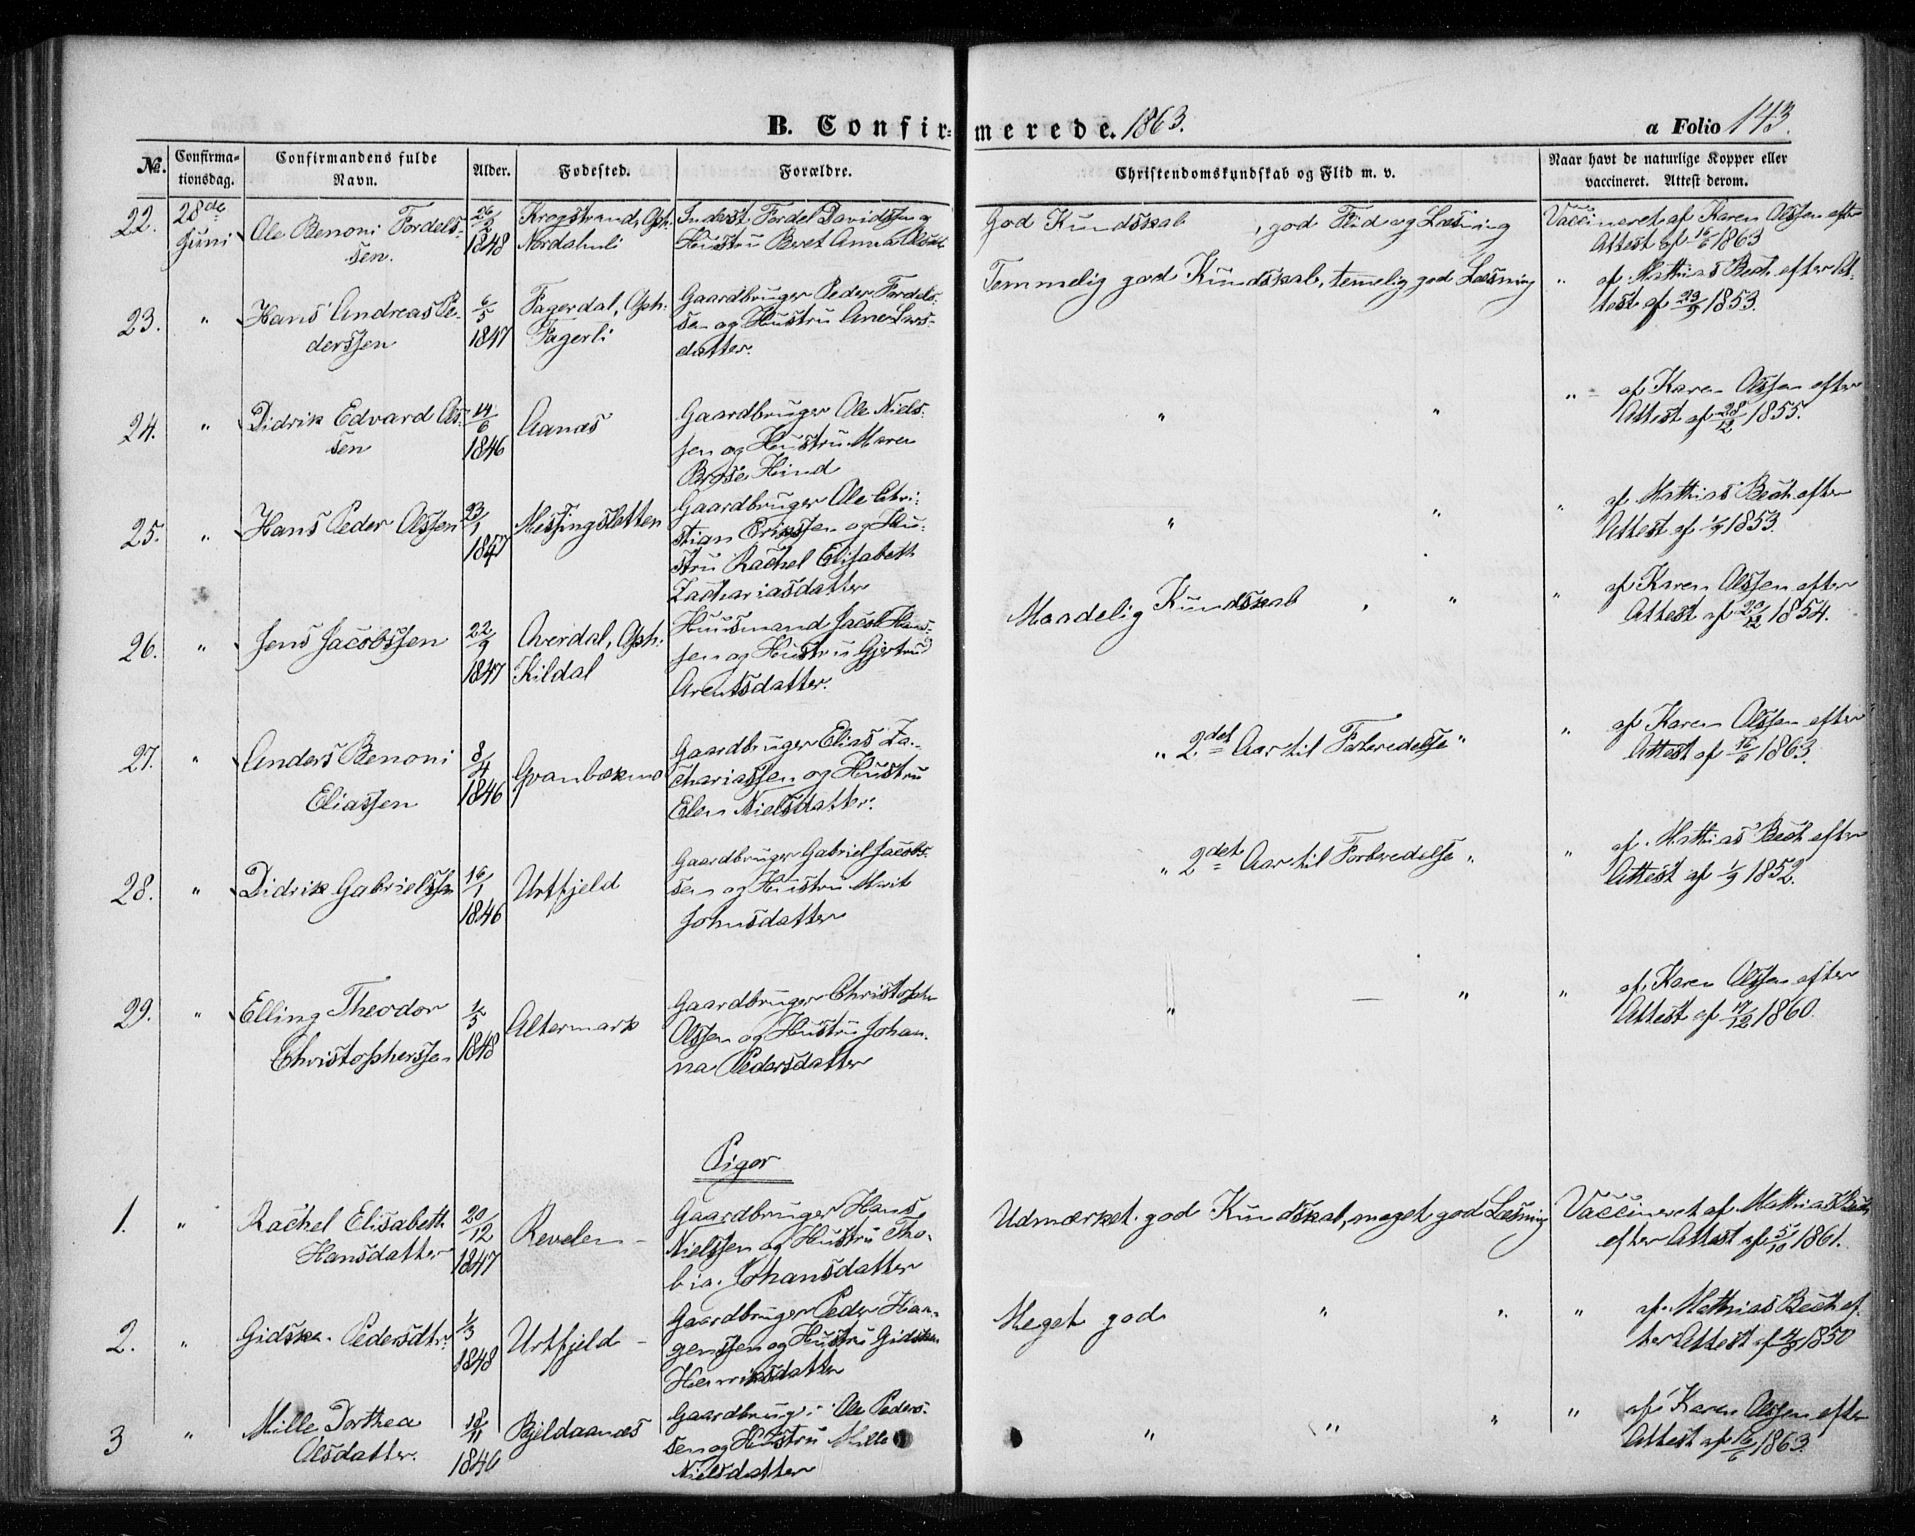 B. Confirmerede. 1863.
a Folio 143.
No.
Confirmationsdag.
Confirmandens fulde Navn.
Alder.
Fødested.
Forældre.
Christendomskundskab og Flid m. v.
Naar havt de naturlige Kopper eller vaccineret. Attest derom.
22.
28de Juni
Ole Benoni Fordels-
sen.
1848
Krogstrand, Oph.
Nordahnli
Inderst Fordel Davidssen og
Hustru Beret Anna
God Kundskab, god Flid og Læsning
Vaccineret af Karen Olssen efter
Attest af 16/6 1863
23.
"
Hans Andreas Pe-
derssen
6/5
1847
Fagerdal, Oph.
Fagerli
Gaardbruger Peder Fordels-
sen og Hustru Ane Lars-
datter.
Temmelig god Kundskab, temelig god Læsning
" af Mathias Bech efter At-
test af 23/9 1853.
24.
"
Didrik Edvard Ols-
sen
14/6
1846
Aanæs
Gaardbruger Ole Niels-
sen og Hustru Maren
Hind
" "
" af Karen Olssen efter
Attest af 28/12 1855.
25.
"
Hans Peder Olssen
23/1
1847
Messingsletten
Gaardbruger Ole Chri-
stian Erikssen og Hu-
stru Rachel Elisabeth
Zachariasdatter
" "
" af Mathias Bech efter
Attest af 1/9 1853.
26.
"
Jens Jacobssen
22/9
1847
Averdal, Oph.
Kildal
Huusmand Jacob Hans-
sen og Hustru Gjertrud
Arentsdatter.
Maadelig Kundskab, "
" af Karen Olssen efter
Attest af 20/12 1854.
27.
"
Anders Benoni
Eliassen
8/4
1846
Granbækmo
Gaardbruger Elias Za-
chariassen og Hustru
Elen Nielsdatter.
" 2det Aar til Forberedelse "
" af Karen Olssen efter
Attest af 16/6 1863.
28.
"
Didrik Gabrielssen
16/1
1846
Urtfjeld
Gaardbruger Gabriel Jacobs-
sen og Hustru Marit
Johnsdatter
" 2det Aar til Forberedelse "
" af Mathias Bech efter
Attest af 1/9 1852.
29.
"
Elling Theodor
Christophersen
1848
Altermark
Gaardbruger Christopher
Olssen og Hustru Johan-
na Pedersdatter
" "
" af Karen Olssen efter
Attest af 17/12 1860.
Piger
1.
"
Rachel Elisabeth
Hansdatter
20/12
1847
Revelen
Gaardbruger Hans
Nielssen og Hustru Tho-
bia Johansdatter
Udmærket god Kundskab, meget god Læsning
Vaccineret af Mathias Bech
efter Attest af 5/10 1861.
2.
"
Gidske Pedersdtr.
1/3
1848
Urtfjeld
Gaardbruger Peder Haa-
gensen og Hustru Gidsken
Henriksdatter
Meget god " "
" af Mathias Bech ef-
ter Attest af 1850
3
"
Mille Dorthea
Olsdatter.
18/11
1846
Bjeldaanæs
Gaardbruger Ole Peders-
sen og Hustru Mille
Nielsdatter
" " "
" af Karen Olssen efter
Attest af 16/6 1863.